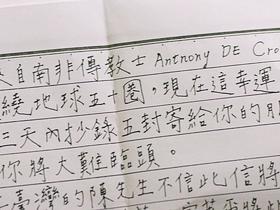 自南非傳教士 Antnony DE Cro
繞地球五十圈，現在這幸運
三天內抄錄五封寄給你的朋
你將大難臨頭。
臺灣的陳先生不信此信將